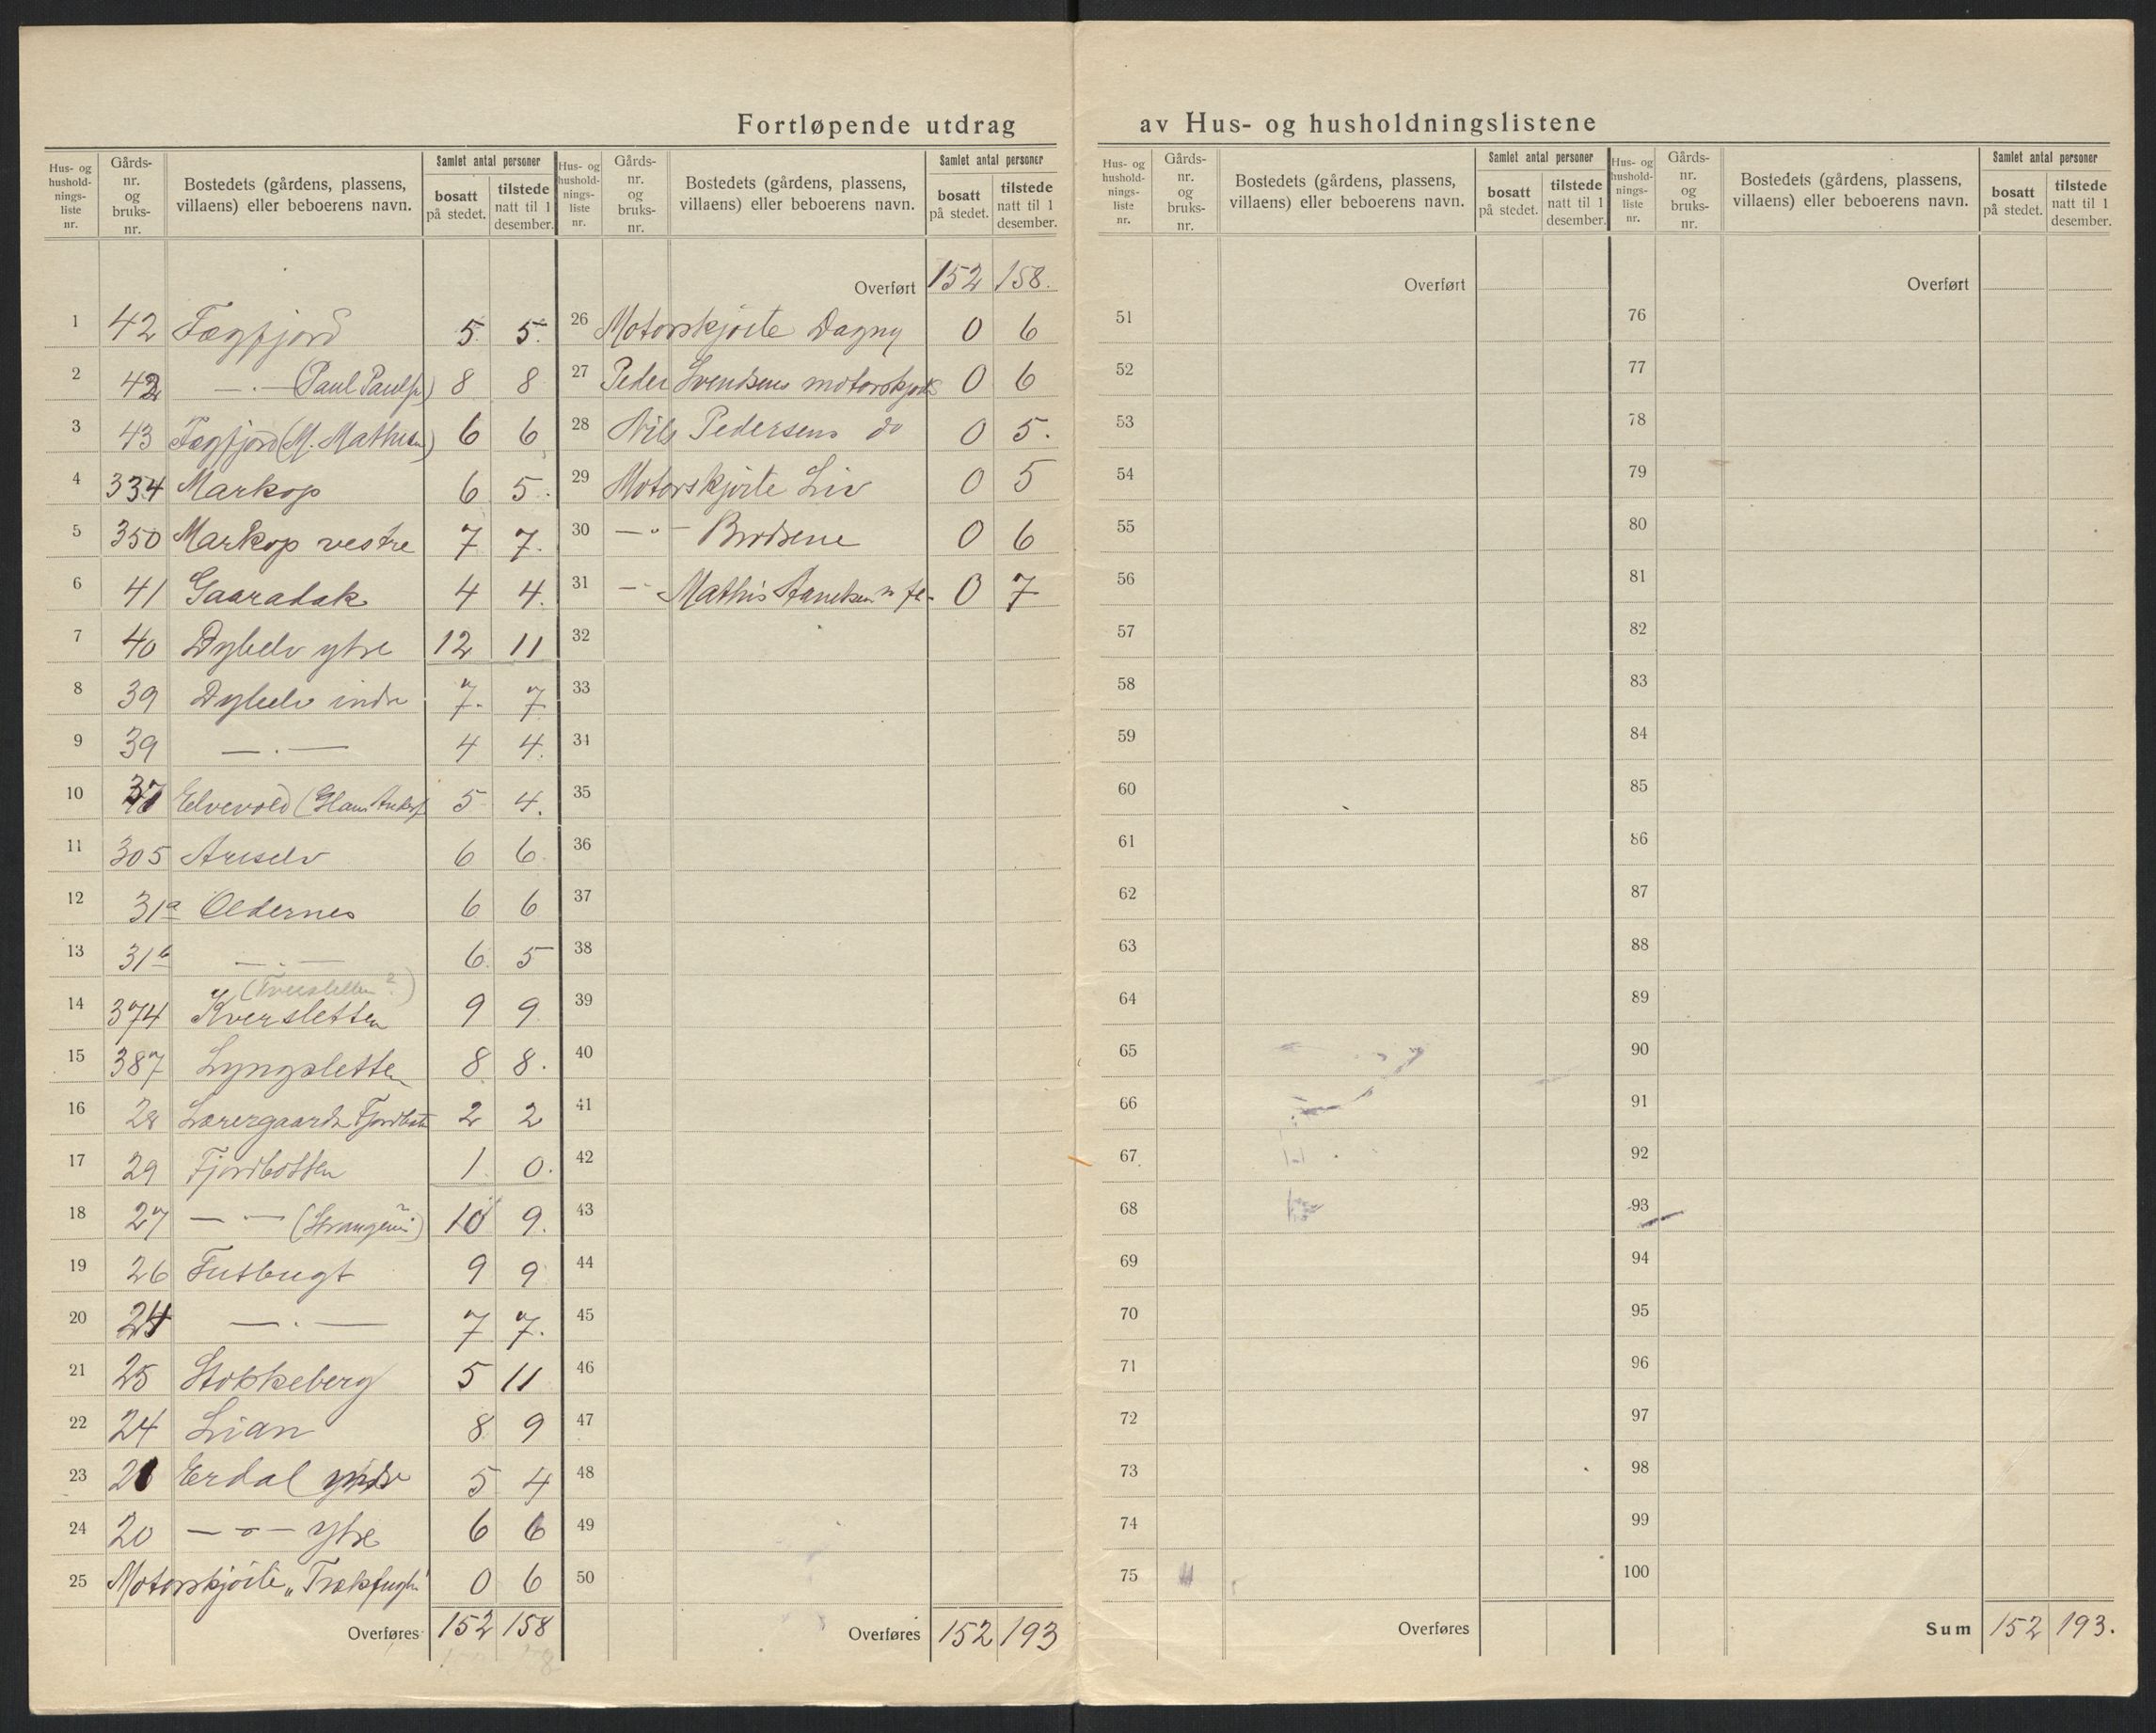 Fortløpende utdrag av Hus- og husholdningslistene
Hus- og hushold-nings-liste nr. Gårds-nr. og bruks-nr. Bostedets (gårdens, plassens, villaens) eller beboerens navn. Samlet antal personer bosatt på stedet. tilstede natt til 1 desember.
1 42 Tægfjord 5. 5.
2 42 —.— (Paul Pauls) 8 8
3 43 Tægfjord (M. Mathisen) 6 6
4 334 Markop 6 5.
5 350 Markop vestre 7 7.
6 41 Gaaradak 4 4.
7 40 Dybelv ytre 12 11
8 39 Dybelv indre 7. 7
9 39 —.— 4 4.
10 37 Elvevold (Hans 5 4.
11 305 Ariselv 6 6
12 31a Oldernes 6 6
13 31b —.— 6. 5
(Tverrsletten?)
14 374 Kversletten 9 9
15 387 Lyngsletten 8 8.
16 28 Lærergaarden Fjordbotn 2 2
17 29 Fjordbotten 1 0.
18 27 — — 10 9.
19 26 Futbugt 9 9
20 24 —.— 7 7.
21 25 Stokkeberg 5 11
22 24 Lian 8 9
23 21 Erdal indre 5 4
24 20 — " — ytre 6 6
25 Motorskjøite „Trækfuglen" 0 6
Overføres 152 158
Hus- og hushold-nings-liste nr. Gårds-nr. og bruks-nr. Bostedets (gårdens, plassens, villaens) eller beboerens navn. Samlet antal personer bosatt på stedet. tilstede natt til 1 desember.
Overført 152 158.
26 Motorskjøite Dagny 0 6
27 Peder Svendsens motorskjøite 0 6
28 Nils Pedersens do 0 5.
29 Motorskjøite Liv 0 5
30 — " — Brødrene 0 6
31 — " — Mathis 0 7
32
33
34
35
36
37
38
39
40
41
42
43
44
45
46
47
48
49
50
Overføres 152 193
Hus- og hushold-nings-liste nr. Gårds-nr. og bruks-nr. Bostedets (gårdens, plassens, villaens) eller beboerens navn. Samlet antal personer bosatt på stedet. tilstede natt til 1 desember.
Overført
51
52
53
54
55
56
57
58
59
60
61
62
63
64
65
66
67
68
69
70
71
72
73
74
75
Overføres
Hus- og hushold-nings-liste nr. Gårds-nr. og bruks-nr. Bostedets (gårdens, plassens, villaens) eller beboerens navn. Samlet antal personer bosatt på stedet. tilstede natt til 1 desember.
Overført
76
77
78
79
80
81
82
83
84
85
86
87
88
89
90
91
92
93
94
95
96
97
98
99
100
Sum 152 193.